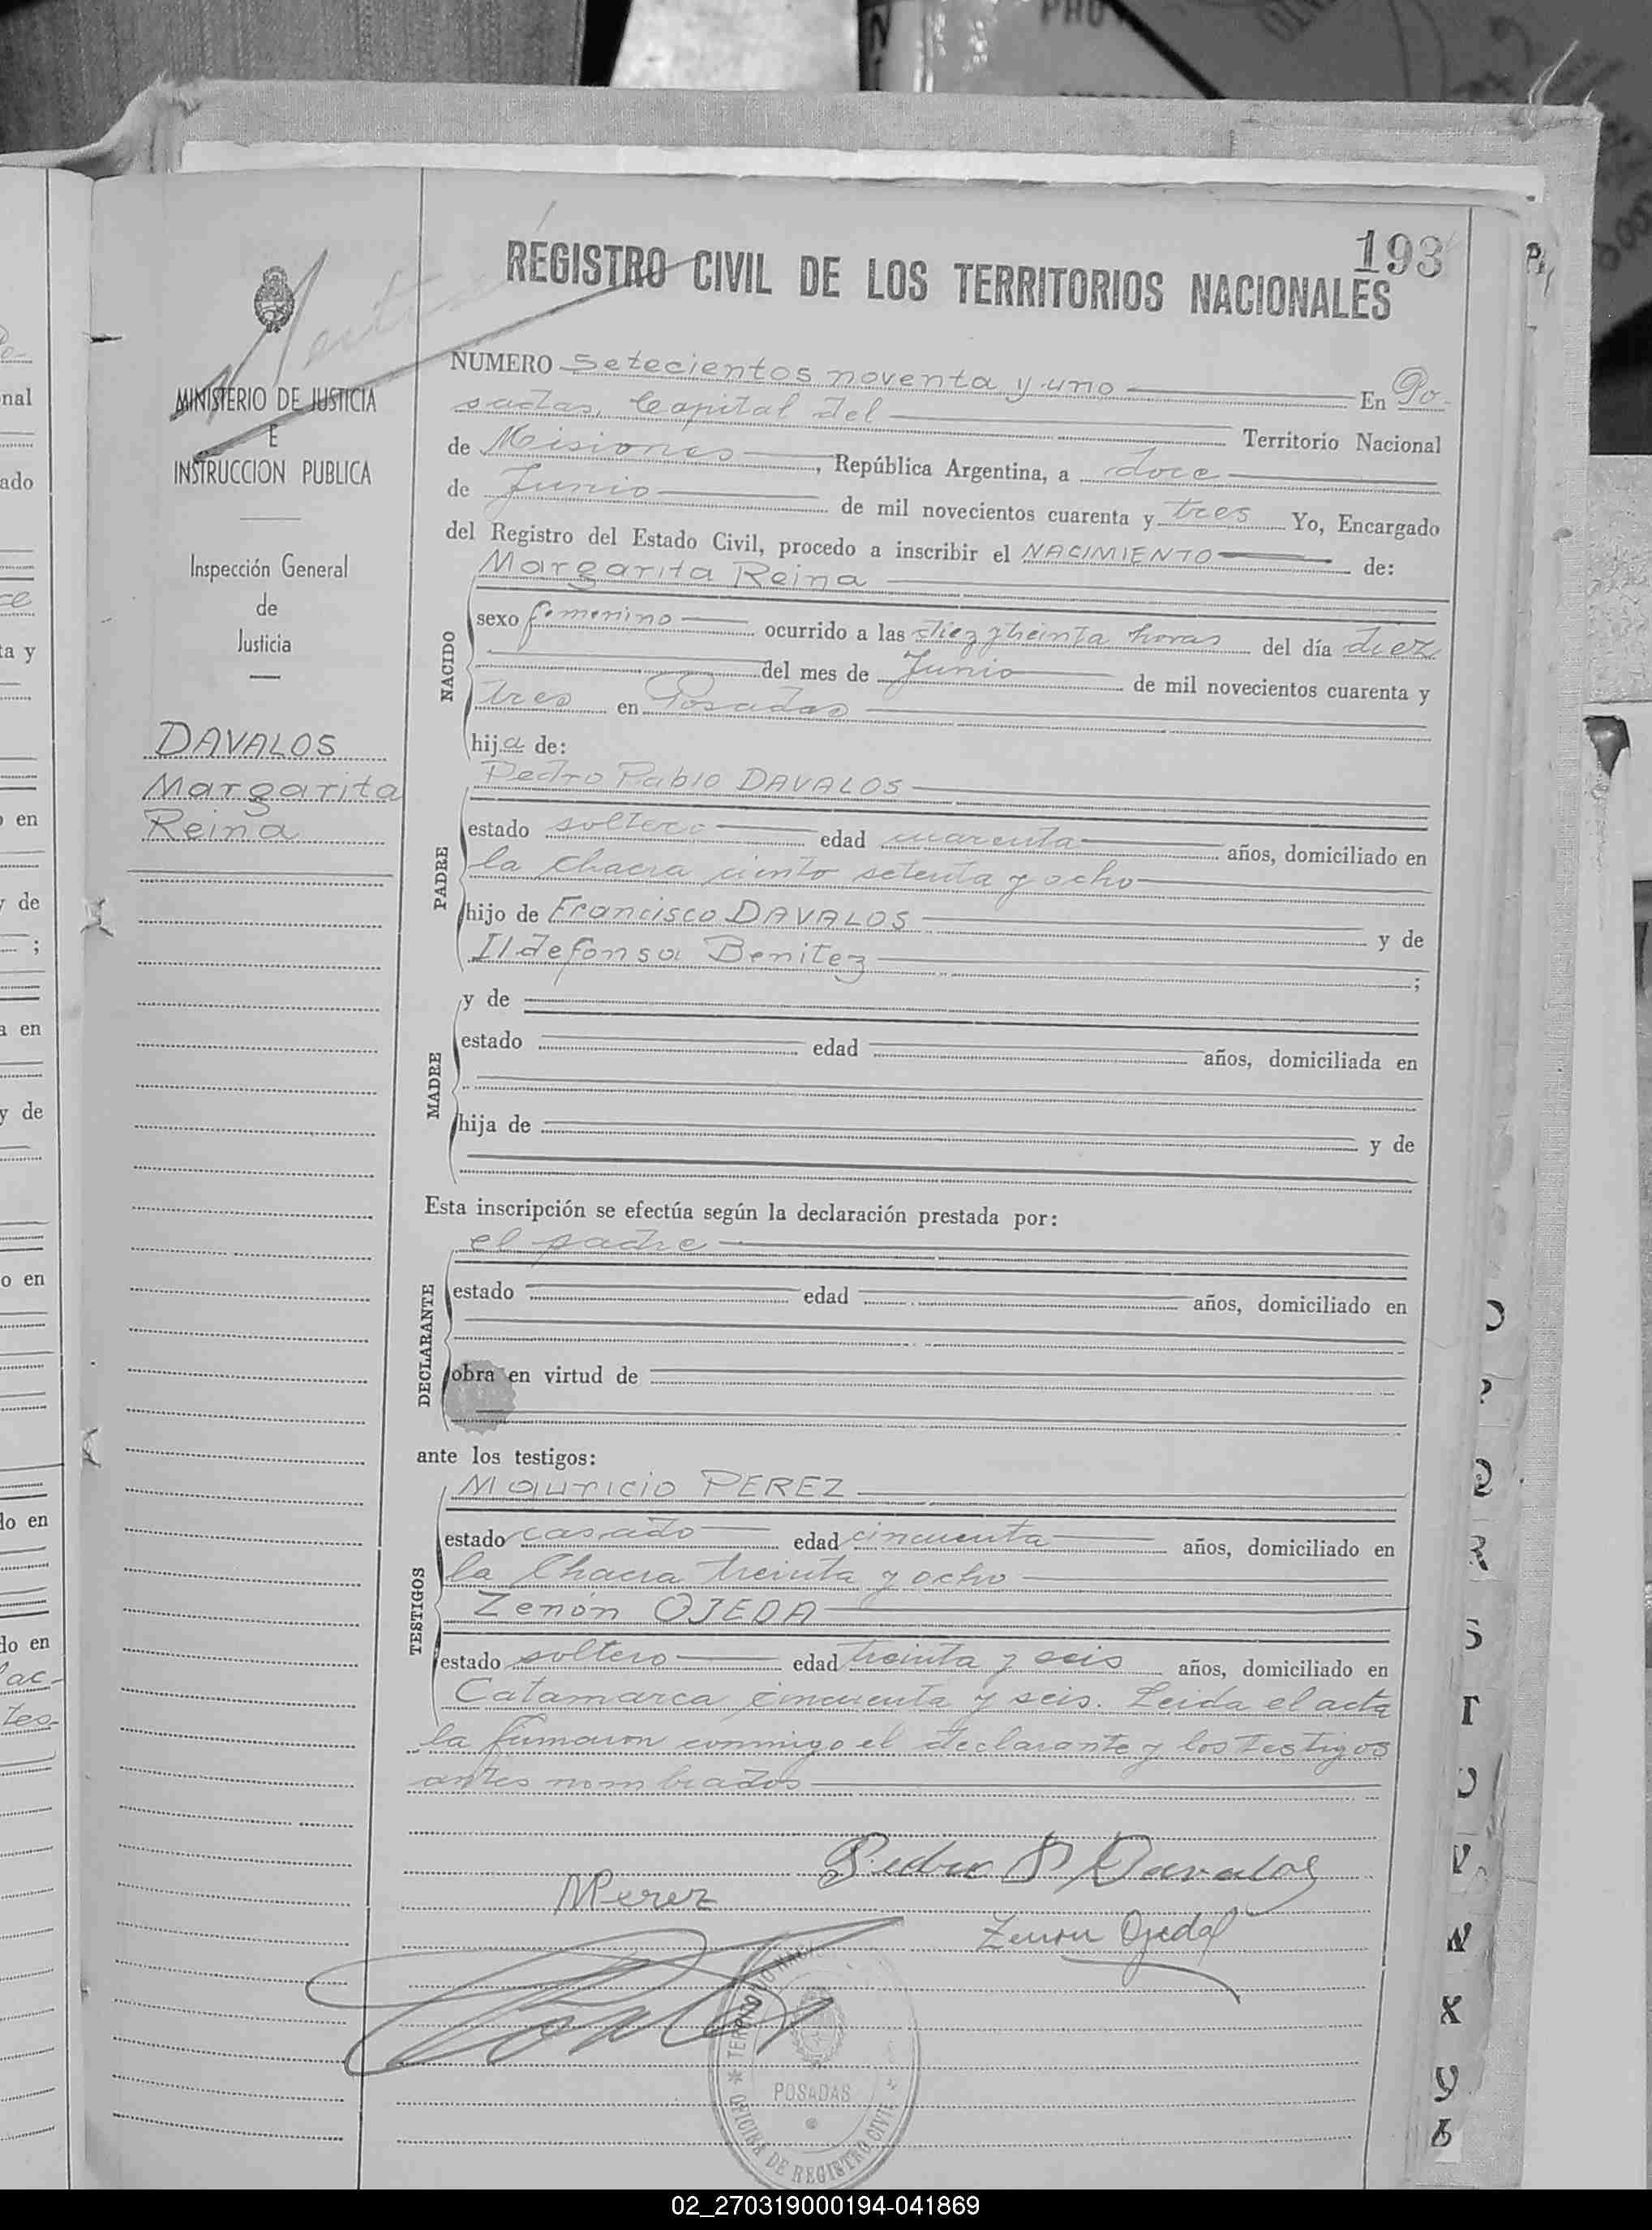 193
REGISTRO CIVIL DE LOS TERRITORIOS NACIONALES
MINISTERIO DE JUSTICIA
E
INSTRUCCION PUBLICA
Inspección General
de
Justicia
DAVALOS
Margarita
Reina
NUMERO Setecientos noventa y uno En Po-
sadas, Capital del Territorio Nacional
de Misiones, República Argentina, a doce
de Junio de mil novecientos cuarenta y tres Yo, Encargado
del Registro del Estado Civil, procedo a inscribir el NACIMIENTO de:
Margarita Reina
NACIDO
sexo femenino ocurrido a las diez y treinta horas del día diez
del mes de Junio de mil novecientos cuarenta y
tres en Posadas
hija de:
Pedro Pablo DAVALOS
PADRE
estado soltero edad cuarenta años, domiciliado en
la Chacra ciento setenta y ocho
hijo de Francisco DAVALOS y de
Ildefonsa Benitez ;
MADRE
y de
estado edad años, domiciliada en
hija de y de
Esta inscripción se efectúa según la declaración prestada por:
el padre
DECLARANTE
estado edad años, domiciliado en
obra en virtud de
ante los testigos:
Mauricio PEREZ
TESTIGOS
estado casado edad cincuenta años, domiciliado en
la Chacra treinta y ocho
Zenón OJEDA
estado soltero edad treinta y seis años, domiciliado en
Catamarca cincuenta y seis. Leida el acta
la firmaron conmigo el declarante y los testigos
antes nombrados
Pedro P Davalos
MPerez
Zenon Ojeda
POSADAS
OFICINA DE REGISTRO CIVIL
02_270319000194-041869